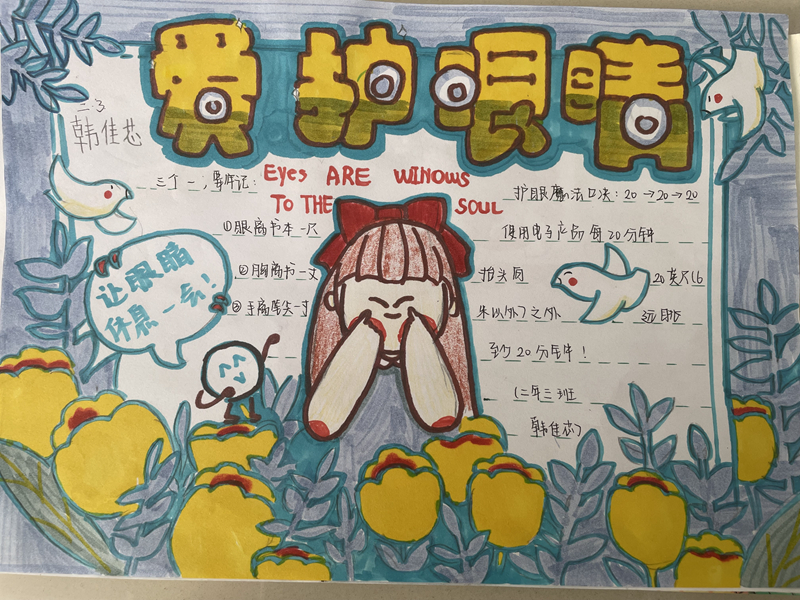 爱护眼睛
二.3
韩佳芯
Eyes ARE WINOWS
TO THE SOUL
三个一,要牢记:
①眼离书本一尺
②胸离书一丈
③手离笔尖一寸
让眼睛
休息一会!
护眼魔法口诀:20→20→20
使用电子产品每20分钟
抬头向 20英尺(6
米以外)之外 远眺
至少20分钟!
(二年三班
韩佳芯)